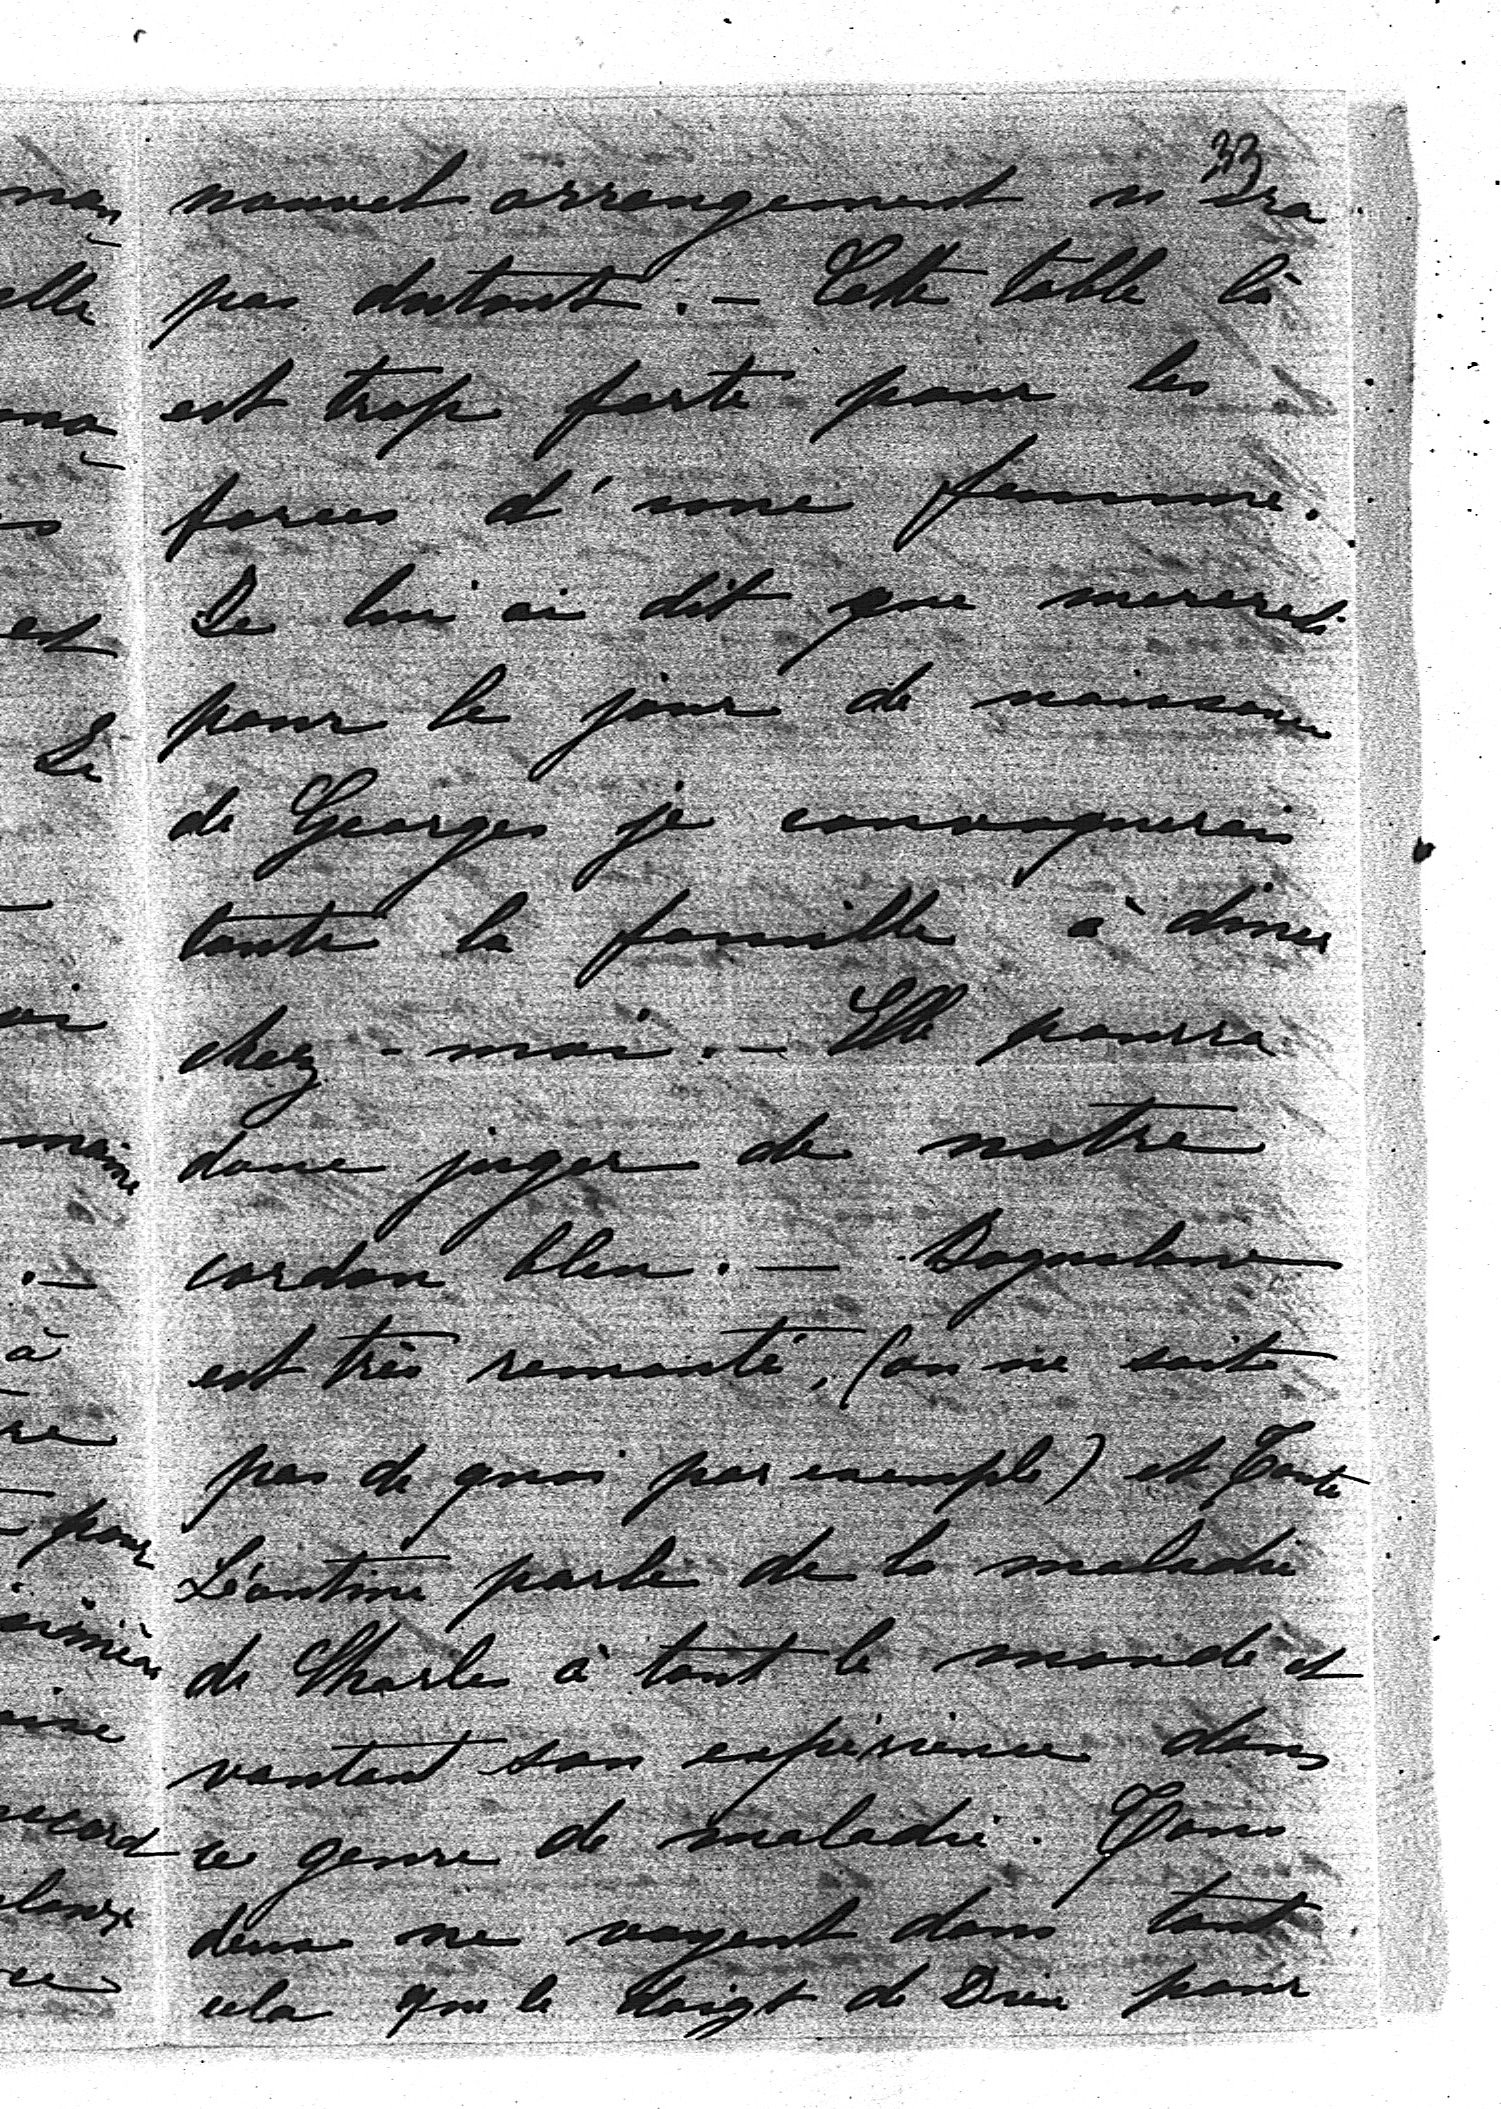 33
nouvel arrangement n'ira
pas dutout. - Cette table là
est trop forte pour les
forces d'une femme.
Je lui ai dit que mercredi
pour le jour de naissance
de Georges je convoquerais
toute la famille à diner
chez-moi. - Elle pourra
donc juger de notre
cordon bleu. -
est très remonté, (on ne sait
pas de quoi par exemple) et Tante
Léontine parle de la maladie
de Charles à tout le monde et
vantant son expérience dans
ce genre de maladie. Tous
deux ne voyent dans tout
cela que le doigt de Dieu pour